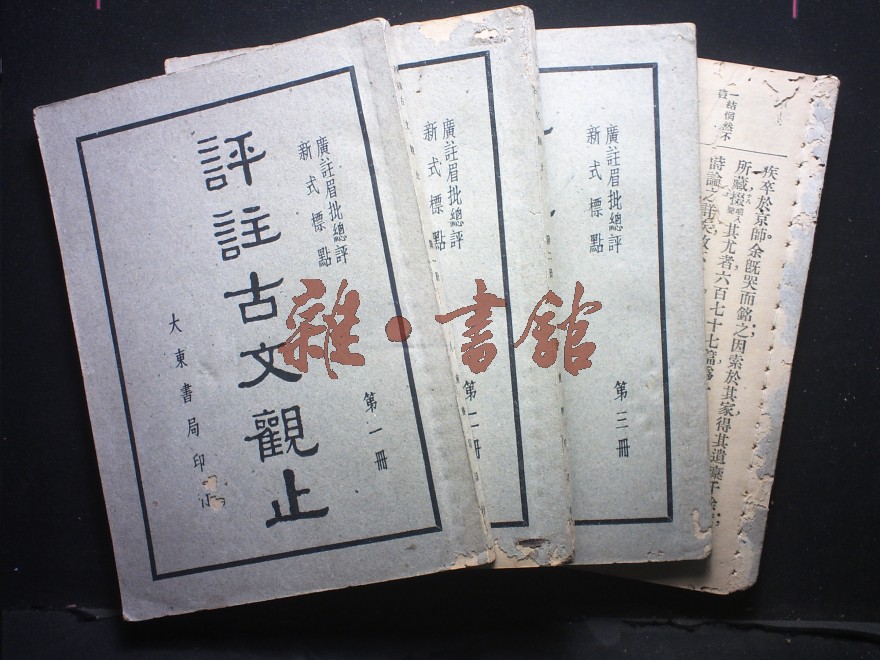 廣註眉批總評
新式標點
評註古文觀止
第一冊
大東書局印
廣註眉批總評
新式標點
第二冊
廣註眉批總評
新式標點
第三冊
疾卒於京師余既哭而銘之因索於其家得其遺稾千餘
所藏掇其尤者六百七十七篇爲
詩論之詳矣故
一結悄然不
雜·書館